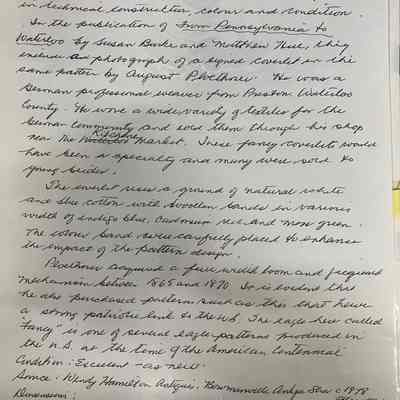 in technical construction, colour and condition.
In the publication of From Pennsylvania to
Waterloo by Susan Burke and Matthew Hill, they
include a photograph of a signed coverlet in the
same pattern by August Ploethner. He was a
German professional weaver from Preston Waterloo
County. He wove a wide variety of textiles for the
German Community and sold them through his shop
near the Kitchener Market. These fancy coverlets would
have been a specialty and many were sold to
young brides.
The coverlet uses a ground of natural white
and blue cotton with woollen bands in various
width of indigo blue, cadmium red and moss green.
The colour bands were carefully placed to enhance
the impact of the pattern design.
Ploethner acquired a full width loom and jacquard
mechanism between 1865 and 1870. It is evident that
he also purchased patterns such as this that have
a strong patriotic link to the U.S. The eagle here called
"Fancy" is one of several eagle patterns produced in
the U.S. at the time of the American Centennial
Condition: Excellent - as new.
Source: Wendy Hamilton Antiques, Bowmanville Antique Show c 1978
Dimensions: